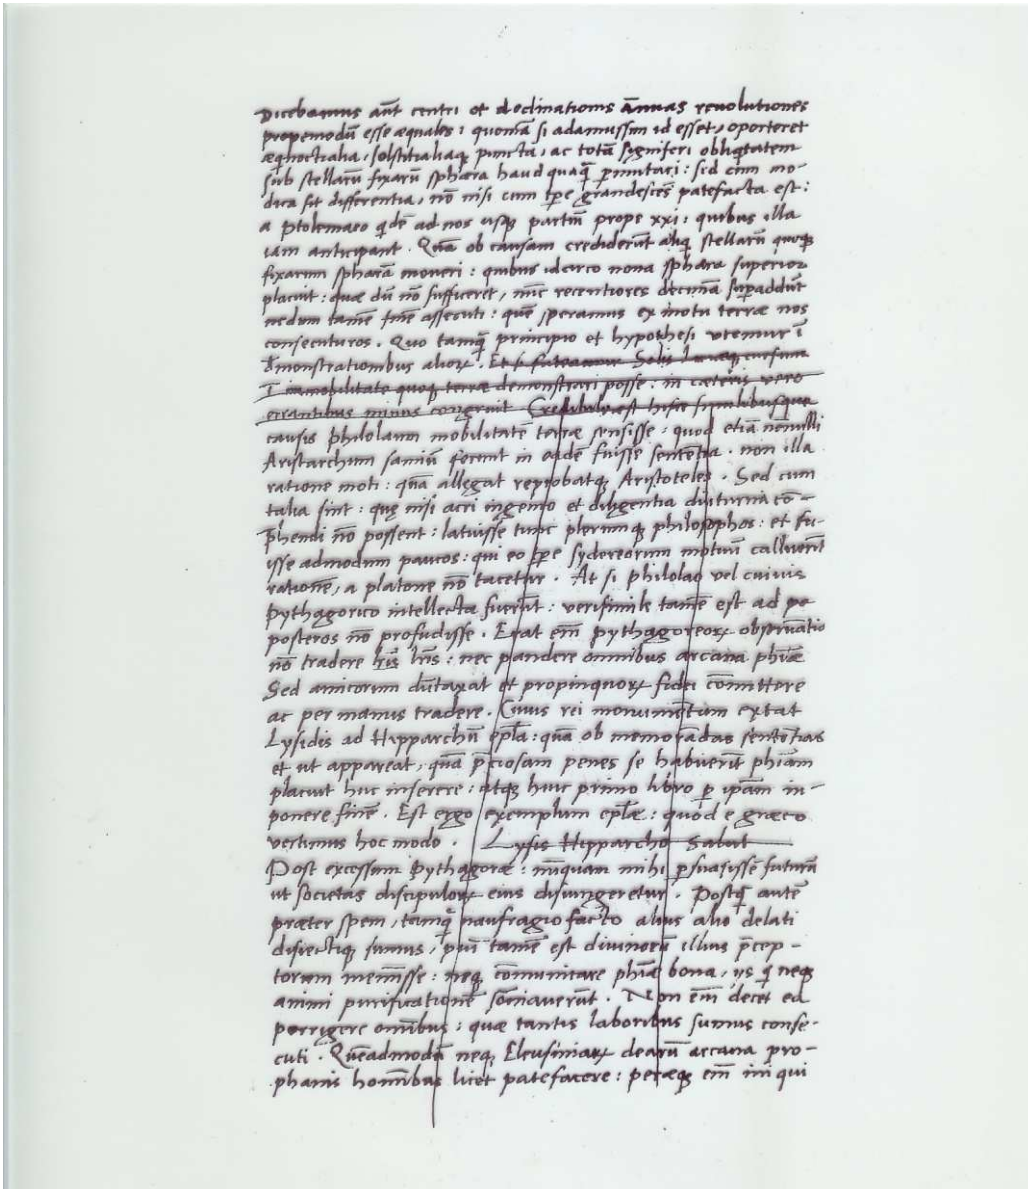 Dicebamus aūt centri et declinationis ānuas reuolutiones
propemodū esse æquales: quoniā si adamussim id esset, oporteret
æqinoctialia, solstitialiaqꝫ puncta, ac totā signiferi obliqitatem
sub stellarū fixarū sphæra haud quaqꝫ p̄mutari: sed cum mo-
dica sit differentia, nō nisi cum tp̄e grandescēs patefacta est:
a Ptolemaeo qidē ad nos usqꝫ partiū prope xxi: quibus illa
iam anticipant. Quā ob causam crediderūt aliqi stellarū quoqꝫ
fixarum sphærā moueri: quibus idcirco nona sphæra superior
placuit: quæ dū nō sufficeret, nūc recentiores decimā sup̄addūt
nedum tamē finē assecuti: quē speramus ex motu terræ nos
consecuturos. Quo tamqꝫ principio et hypothesi utemur ī
dēmonstrationibus alioꝝ. Et si fateamur Solis Lunæqꝫ cursum
ī immobilitate quoqꝫ terræ demonstrari posse: in cæteris vero
errantibus minus congruit Credibile est hisce similibusque
causis Philolaum mobilitatē terræ sensisse: quod etiā nōnulli
Aristarchum samiū ferunt in eadē fuisse sententia. non illa
ratione moti: quā allegat reprobatqꝫ Aristoteles. Sed cum
talia sint: quę nisi acri ingenio et diligentia diuturna cō-
p̄hendi nō possent: latuisse tunc plerumqꝫ philosophos: et fu-
isse admodum paucos: qui eo tp̄e sydereorum motuū calluerūt
rationē, a platone nō tacetur. At si philolao vel cuiuis
pythagorico intellecta fuerūt: verisimile tamē est ad po
posteros nō profudisse. Erat em̄ pythagoreoꝝ obseruatio
nō tradere lr̄is: nec pandere omnibus arcana phīæ
Sed amicorum dūtaxat et propinquoꝝ fidei cōmittere
ac per manus tradere. Cuius rei monumētum extat
Lysidis ad Hipparchū ep̄la: quā ob memorādas sentētias
et ut appareat, quā p̄ciosam penes se habuerīt phīam
placuit huc inserere: atqꝫ huic primo libro p̄ ip̄am im-
ponere finē. Est ergo exemplum ep̄læ: quod e græco
vertimus hoc modo. Lysis Hipparcho Salut
Post excessum Pythagoræ: nūquam mihi p̄suasissē futurā
ut societas discipuloꝝ eius disiungeretur. Postqꝫ autē
præter spem, tamqꝫ naufragio facto alius alio delati
disiectiqꝫ sumus, piū tamē est diuinorū illius p̄cep-
torum meminisse: neqꝫ cōmunicare phīæ bona, ijs qi neqꝫ
animi purificationē somniauerūt. Non em̄ decet ea
porrigere omībus: quæ tantis laboribus sumus conse-
cuti. Quēadmodū neqꝫ Eleusiniaꝝ dearū arcana pro-
phanis homībus licet patefacere: peræqꝫ em̄ iniqui